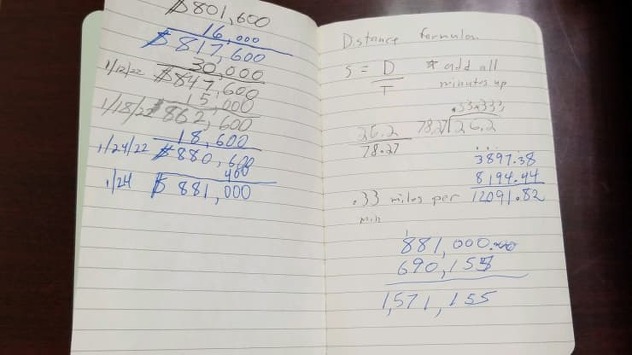 $801,600
16,000
$817,600
30,000
1/12/22 $847,600
15,000
1/18/22 $862,600
18,600
1/24/22 $880,600
400
1/24 $881,000
Distance formulas
S = D * add all
T minutes up
.33333
26.2 78.27 26.2
78.27
3897.38
8194.44
.33 miles per 12091.82
min
1
881,000.00
690,155
1,571,155